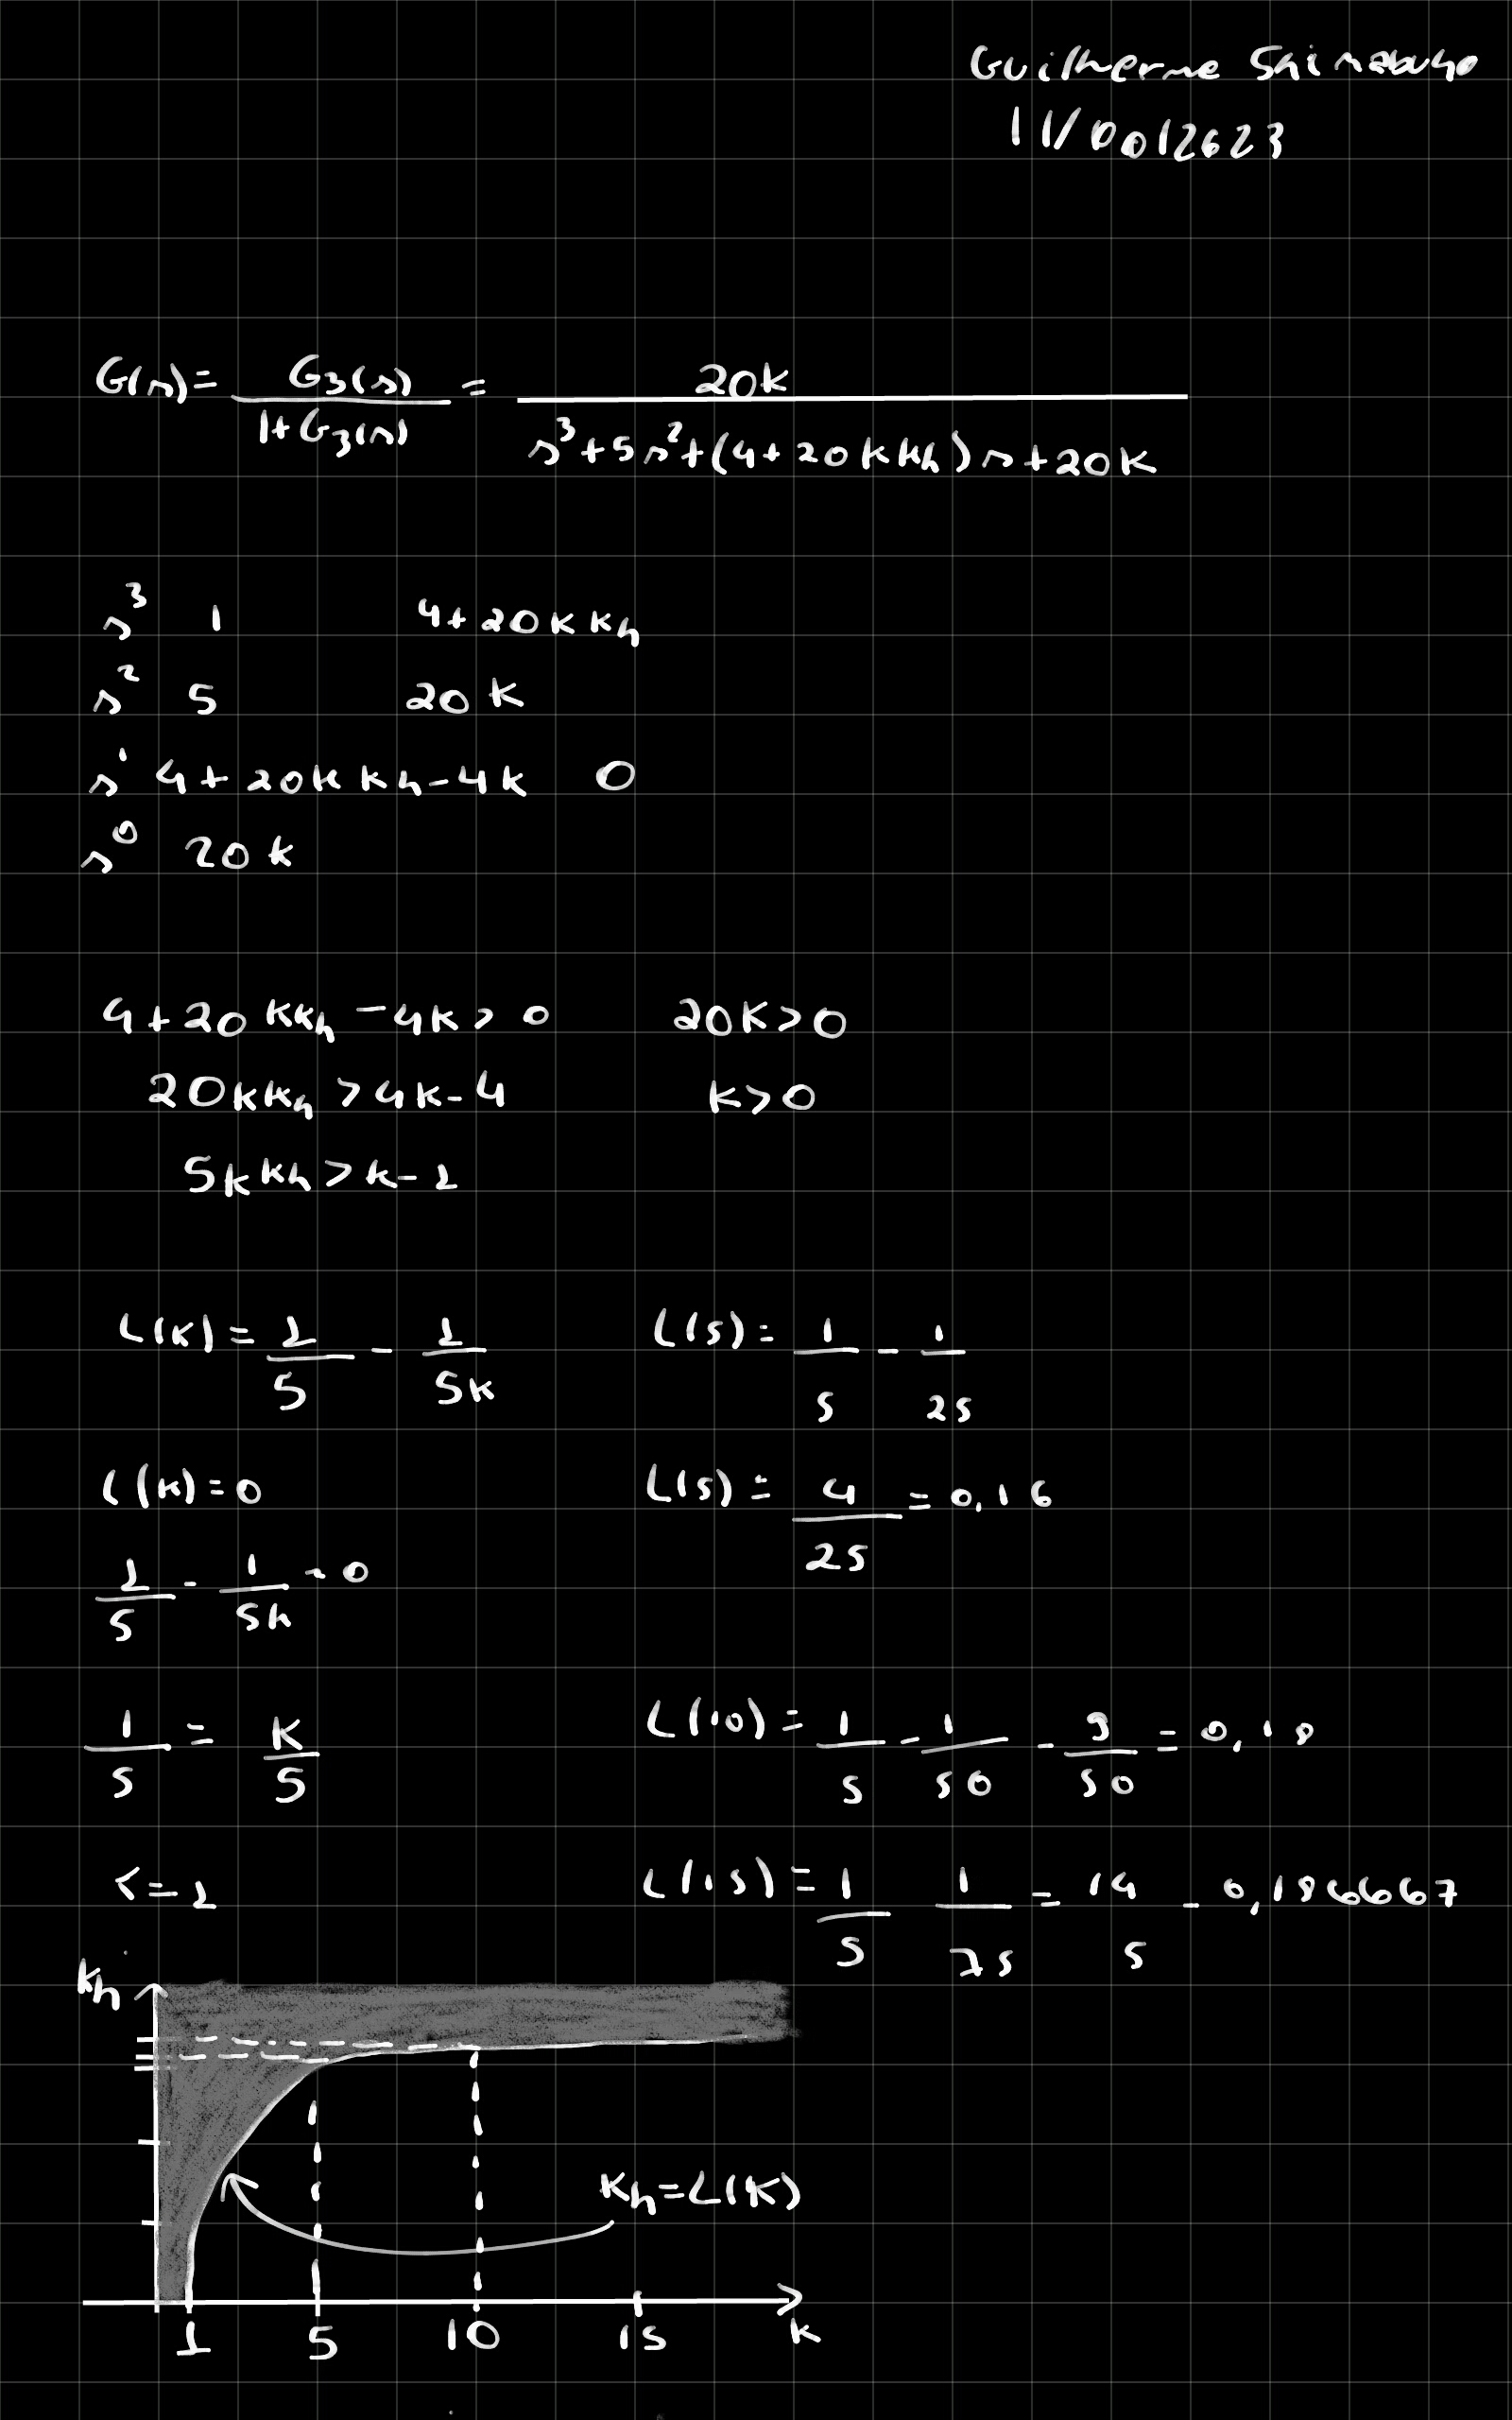 Guilherme Shimabuko
11/0012623
G(s)= G3(s) / 1+G3(s) = 20k / s³+5s²+(4+20kkh)s+20k
s³ 1 4+20kkh
s² 5 20k
s¹ 4+20kkh-4k 0
s⁰ 20k
4+20kkh-4k>0 20k>0
20kkh>4k-4 k>0
5kkh>k-1
L(k)= 1/5 - 1/5k L(5)= 1/5 - 1/25
L(k)=0 L(5)= 4/25 =0,16
1/5 - 1/5k = 0
1/5 = k/5 L(10)= 1/5 - 1/50 - 9/50 = 0,18
k=1 L(15)= 1/5 1/75 = 14/5 - 0,186667
kh
kh=L(k)
1 5 10 15 k